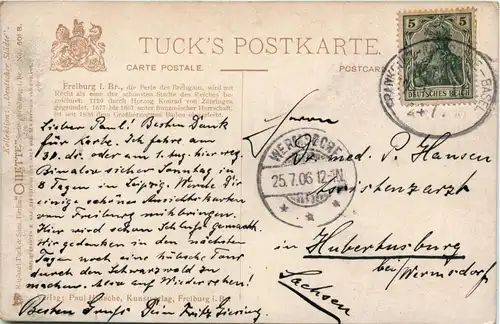 TUCK'S POSTKARTE.
CARTE POSTALE. POSTCARD
Freiburg i. Br., die Perle des Breisgaus, wird mit
Recht als eine der schönsten Städte des Reiches be-
zeichnet. 1120 durch Herzog Konrad von Zähringen
gegründet, 1677 bis 1697 unter französischer Herrschaft,
ist seit dem
5 5
DEUTSCHES REICH
WERMSDORF
25.7.06 12-
Lieber Paul! Besten Dank
für Karte. Ich fahre am
30. ds. oder am 1. Aug. hier weg.
Bin also sicher Sonntag in
8 Tagen in Leipzig. Werde Dir
einige schöne Ansichtskarten
von Freiburg mitbringen.
Hier wird schon Schluß gemacht.
Wir gedenken in den nächsten
Tagen noch eine hübsche Tour
durch den Schwarzwald zu
machen. Also auf Wiedersehen!
Besten Gruß Dein Fritz
Herrn
Dr. med. P. Hansen
Assistenzarzt
in Hubertusburg
bei Wermsdorf
Sachsen
Verlag: Paul Kunstverlag, Freiburg i. B.
"OILETTE"